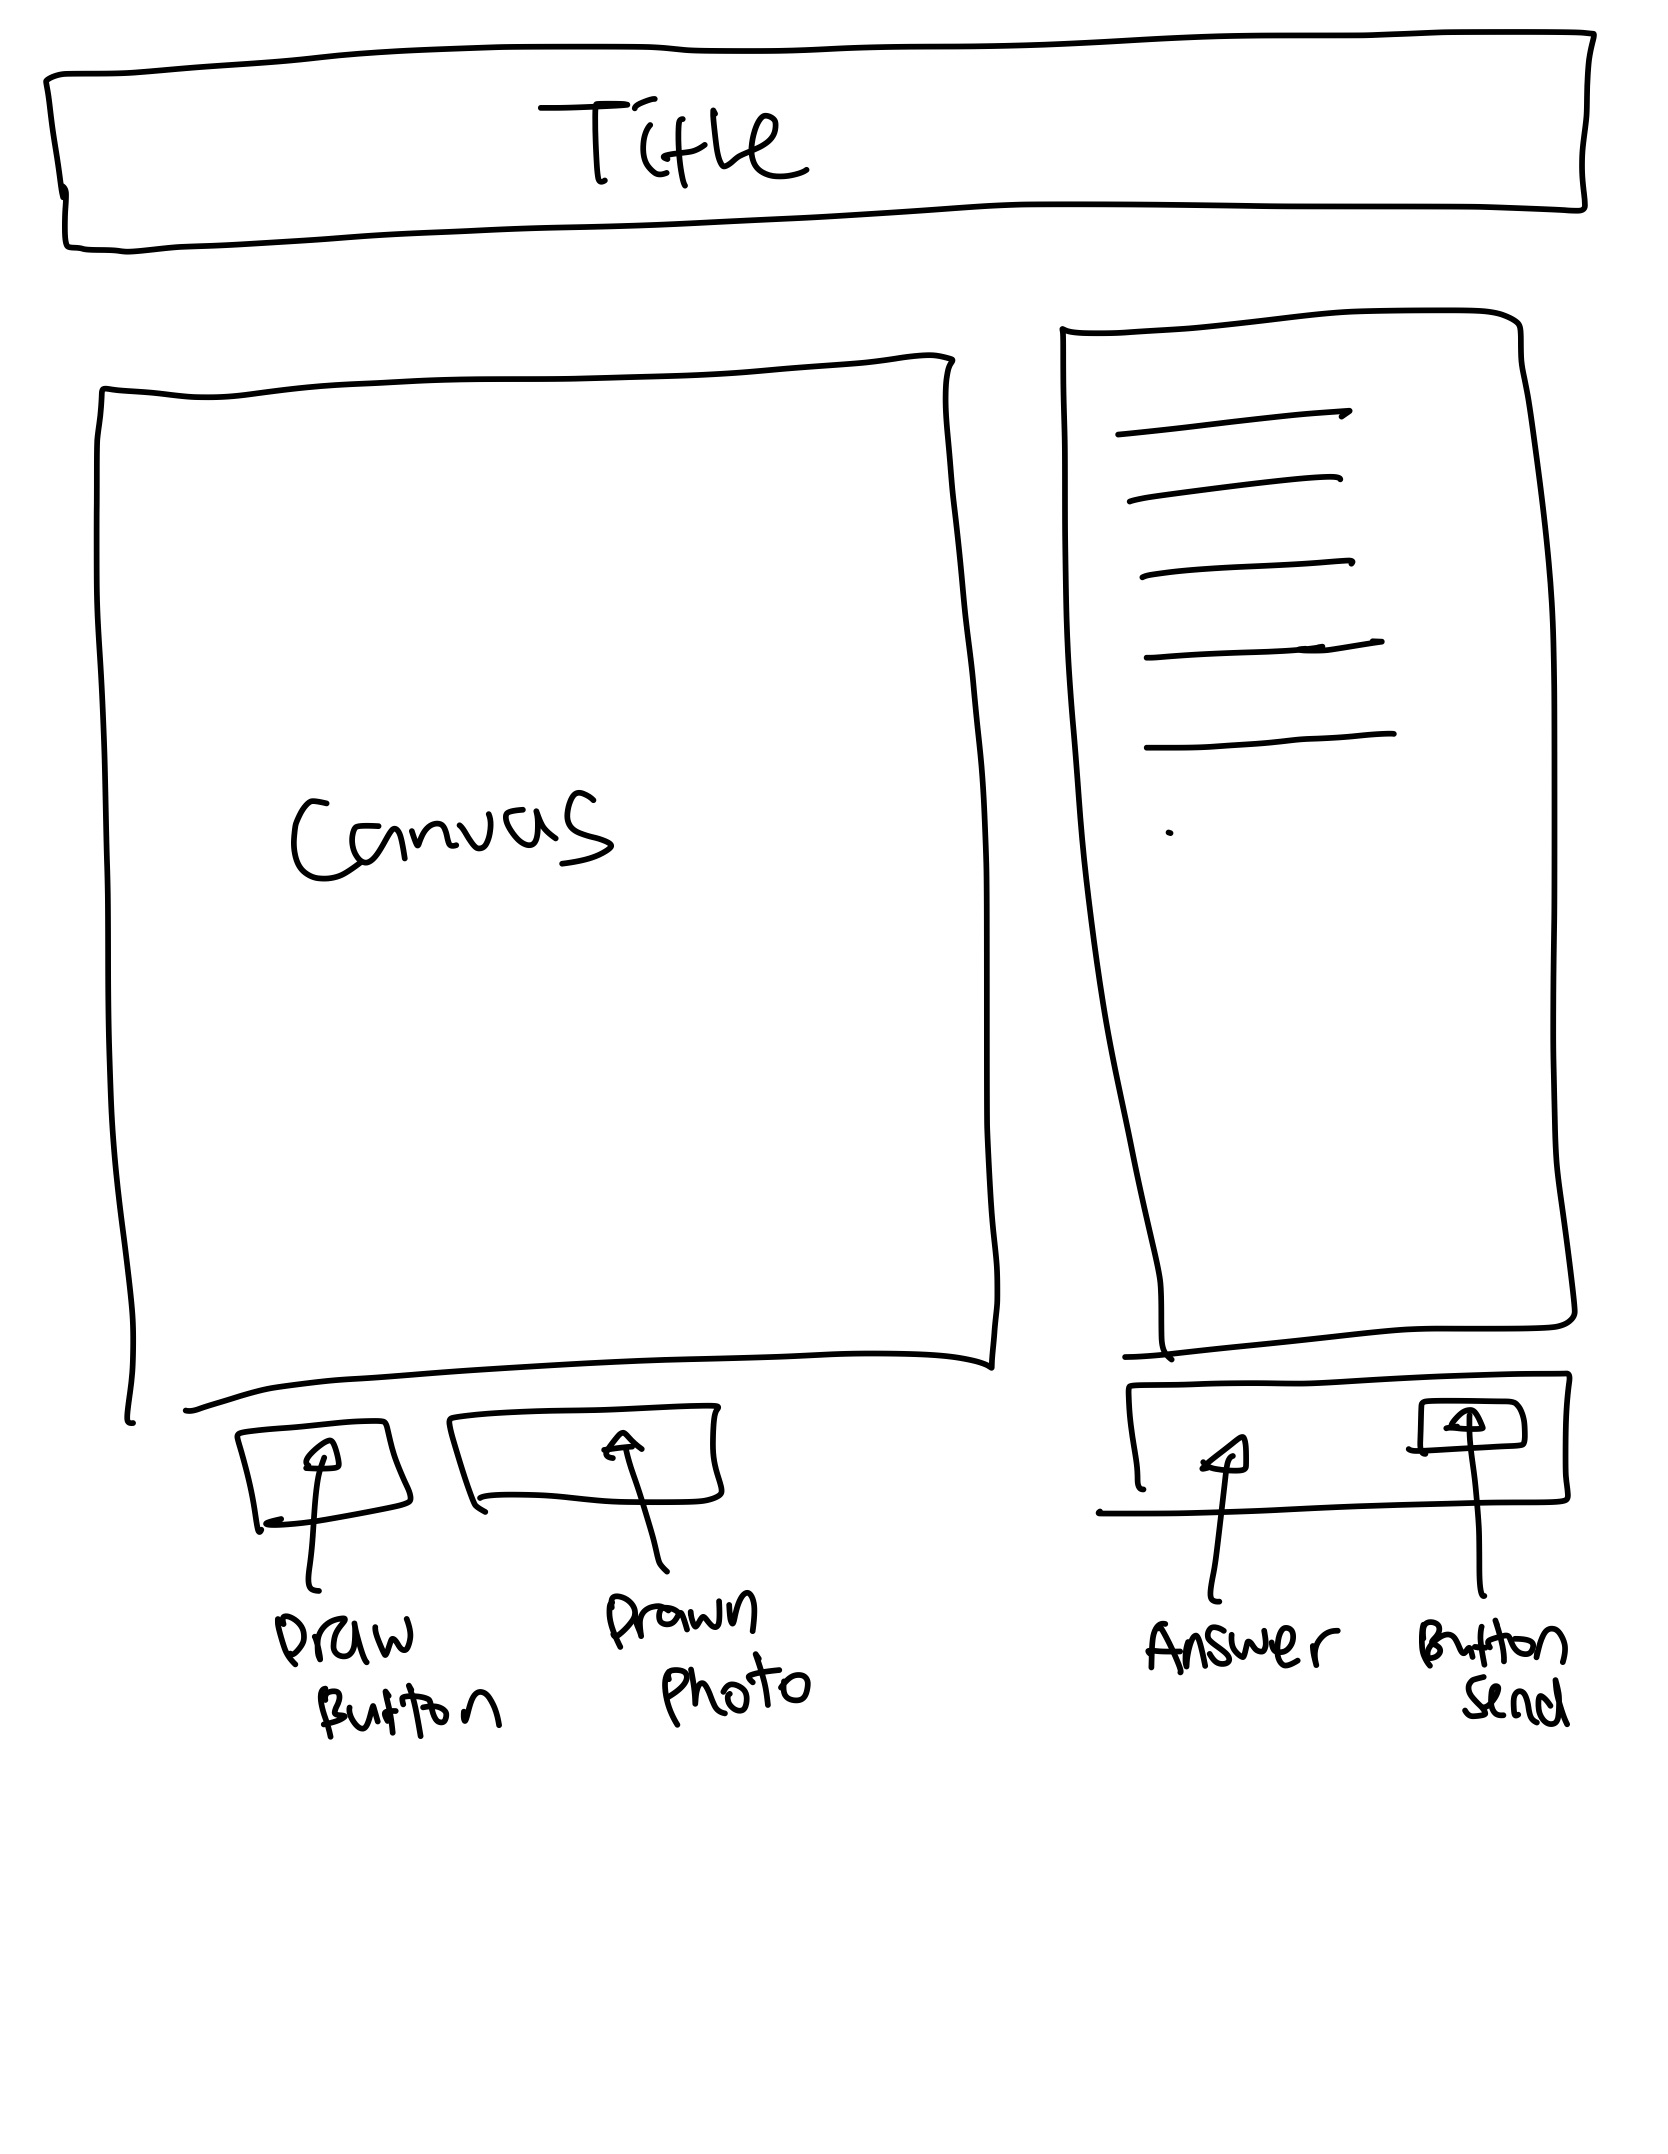 Title
Canvas
Draw
Button
Drawn
photo
Answer
Button
Send